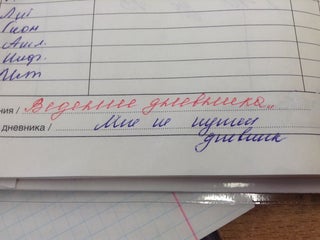 Лит
Геом
Англ.
Инф.
Лит
ния / Ведение дневника
дневника / Мне не нужен
дневник